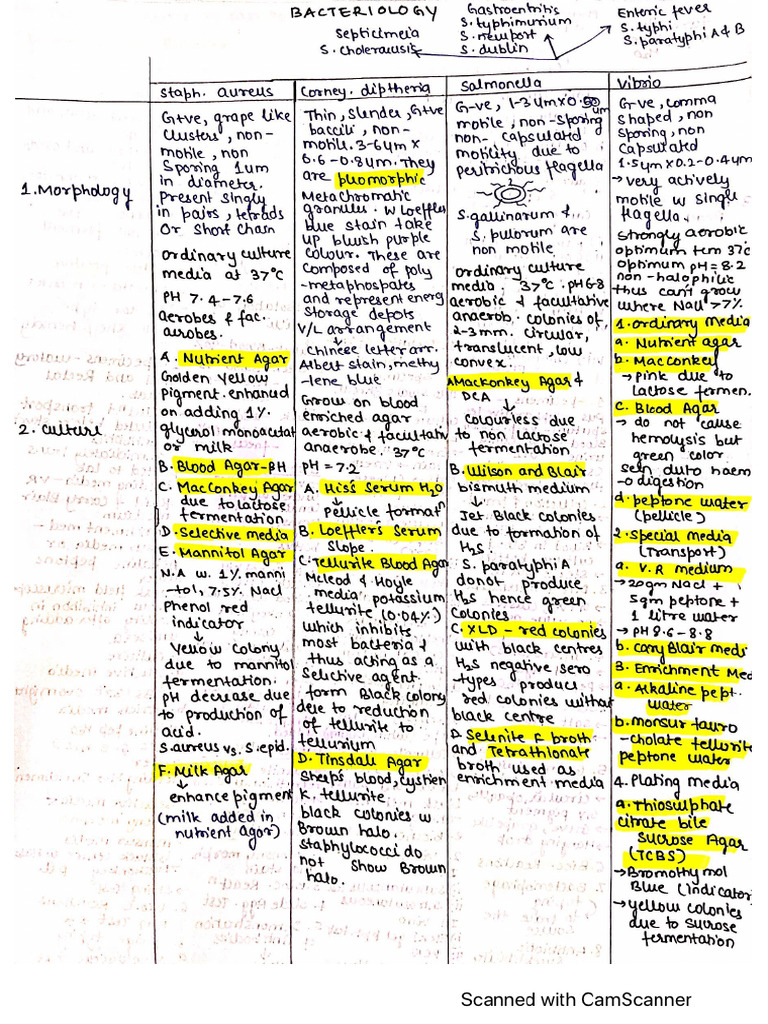 BACTERIOLOGY
Septicimeia
S. cholerausis
Gastroentritis
S. typhimurium
S. newport
S. dublin
Enteric fever
S. typhi
S. paratyphi A & B
Staph. aureus
Corney. diptheria
Salmonella
Vibrio
1. Morphology
G+ve, grape like
clusters, non-
motile, non
Sporing 1um
in diameter.
Present singly
in pairs, tetrads
Or Short Chain
2. culture
ordinary culture
media at 37°C
PH 7.4-7.6
aerobes & fac.
aerobes.
A. Nutrient Agar
Golden Yellow
pigment. enhanced
on adding 1%
glycerol monoacetat
or milk
B. Blood Agar-βH
C. MacConkey Agar
due to lactose
fermentation
D. Selective media
E. Mannitol Agar
N.A w. 1% manni
-tol, 7.5% Nacl
Phenol red
indicator
↓
Yellow Colony
due to mannitol
fermentation.
pH decrease due
to production of
acid.
S. aureus vs. S. epid.
F. Milk Agar
↓
enhance pigment
(milk added in
nutrient agor)
Thin, Slender, G+ve
bacilli, non-
motile. 3-6um x
0.6-0.8um. They
are pluomorphic
Metachromatic
granules. w Loefflers
blue stain take
up bluish purple
colour. These are
composed of poly
-metaphospates
and represent energy
Storage depots
V/L arrangement
↓
Chinese letter arr.
Albert stain, methy
-lene blue
Grow on blood
enriched agar
aerobic & facultativ
anaerobe. 37°C
pH = 7.2
A. Hiss Serum H2O
↓
Pellicle formatn
B. Loeffler's Serum
Slope.
C. Tellurite Blood Agar
Mcleod & Hoyle
media potassium
tellurite (0.04%)
which inhibits
most bacteria &
thus acting as a
Selective agent.
form Black colony
due to reduction
of tellurite to
tellurium
D. Tinsdall Agar
Sheep's blood, cystien
K. tellurite
black colonies w
Brown halo.
staphylococci do
not show Brown
halo.
G-ve, 1-3um x 0.50um
motile, non-sporing
non-capsulated
motility due to
peritrichous flagella
S. gallinarum &
S. pulorum are
non motile.
ordinary culture
media. 37°C. pH 6.8
aerobic & facultative
anaerob. colonies of
2-3mm. circular,
translucent, low
convex.
A Mackonkey Agar &
DCA
↓
Colourless due
to non lactose
fermentation
B. Wilson and Blair
bismuth medium
↓
Jet Black colonies
due to formation of
H2S.
S. paratyphi A
donot produce
H2S hence green
Colonies.
C. XLD - red colonies
with black centres
H2S negative sero
-types produce
red colonies without
black centre
D. Selenite F broth
and Tetrathionate
broth used as
enrichment media
G-ve, comma
shaped, non
sporing, non
Capsulated
1.5um x 0.2-0.4um
→ very actively
motile w single
flagella.
Strongly aerobic
optimum tem 37c
optimum pH = 8.2
non-halophilic
thus can't grow
where Nacl >7%
1. ordinary media
a. Nutrient agar
b. MacConkey
→ pink due to
lactose fermen.
C. Blood Agar
→ do not cause
hemolysis but
green color
seen du to haem
-o digestion
d. peptone water
(pellicle)
2. special media
(Transport)
a. V.R medium
→ 20gm Nacl +
5gm peptone +
1 litre water
→ pH 8.6-8.8
b. cary Blair medi
3. Enrichment Med
a. Alkaline pept.
water
b. monsur tauro
-cholate tellurite
peptone water
4. Plating media
a. Thiosulphate
citrate bile
Sucrose Agar
(TCBS)
→ Bromothymol
Blue (indicator
→ yellow colonies
due to sucrose
fermentation
Scanned with CamScanner